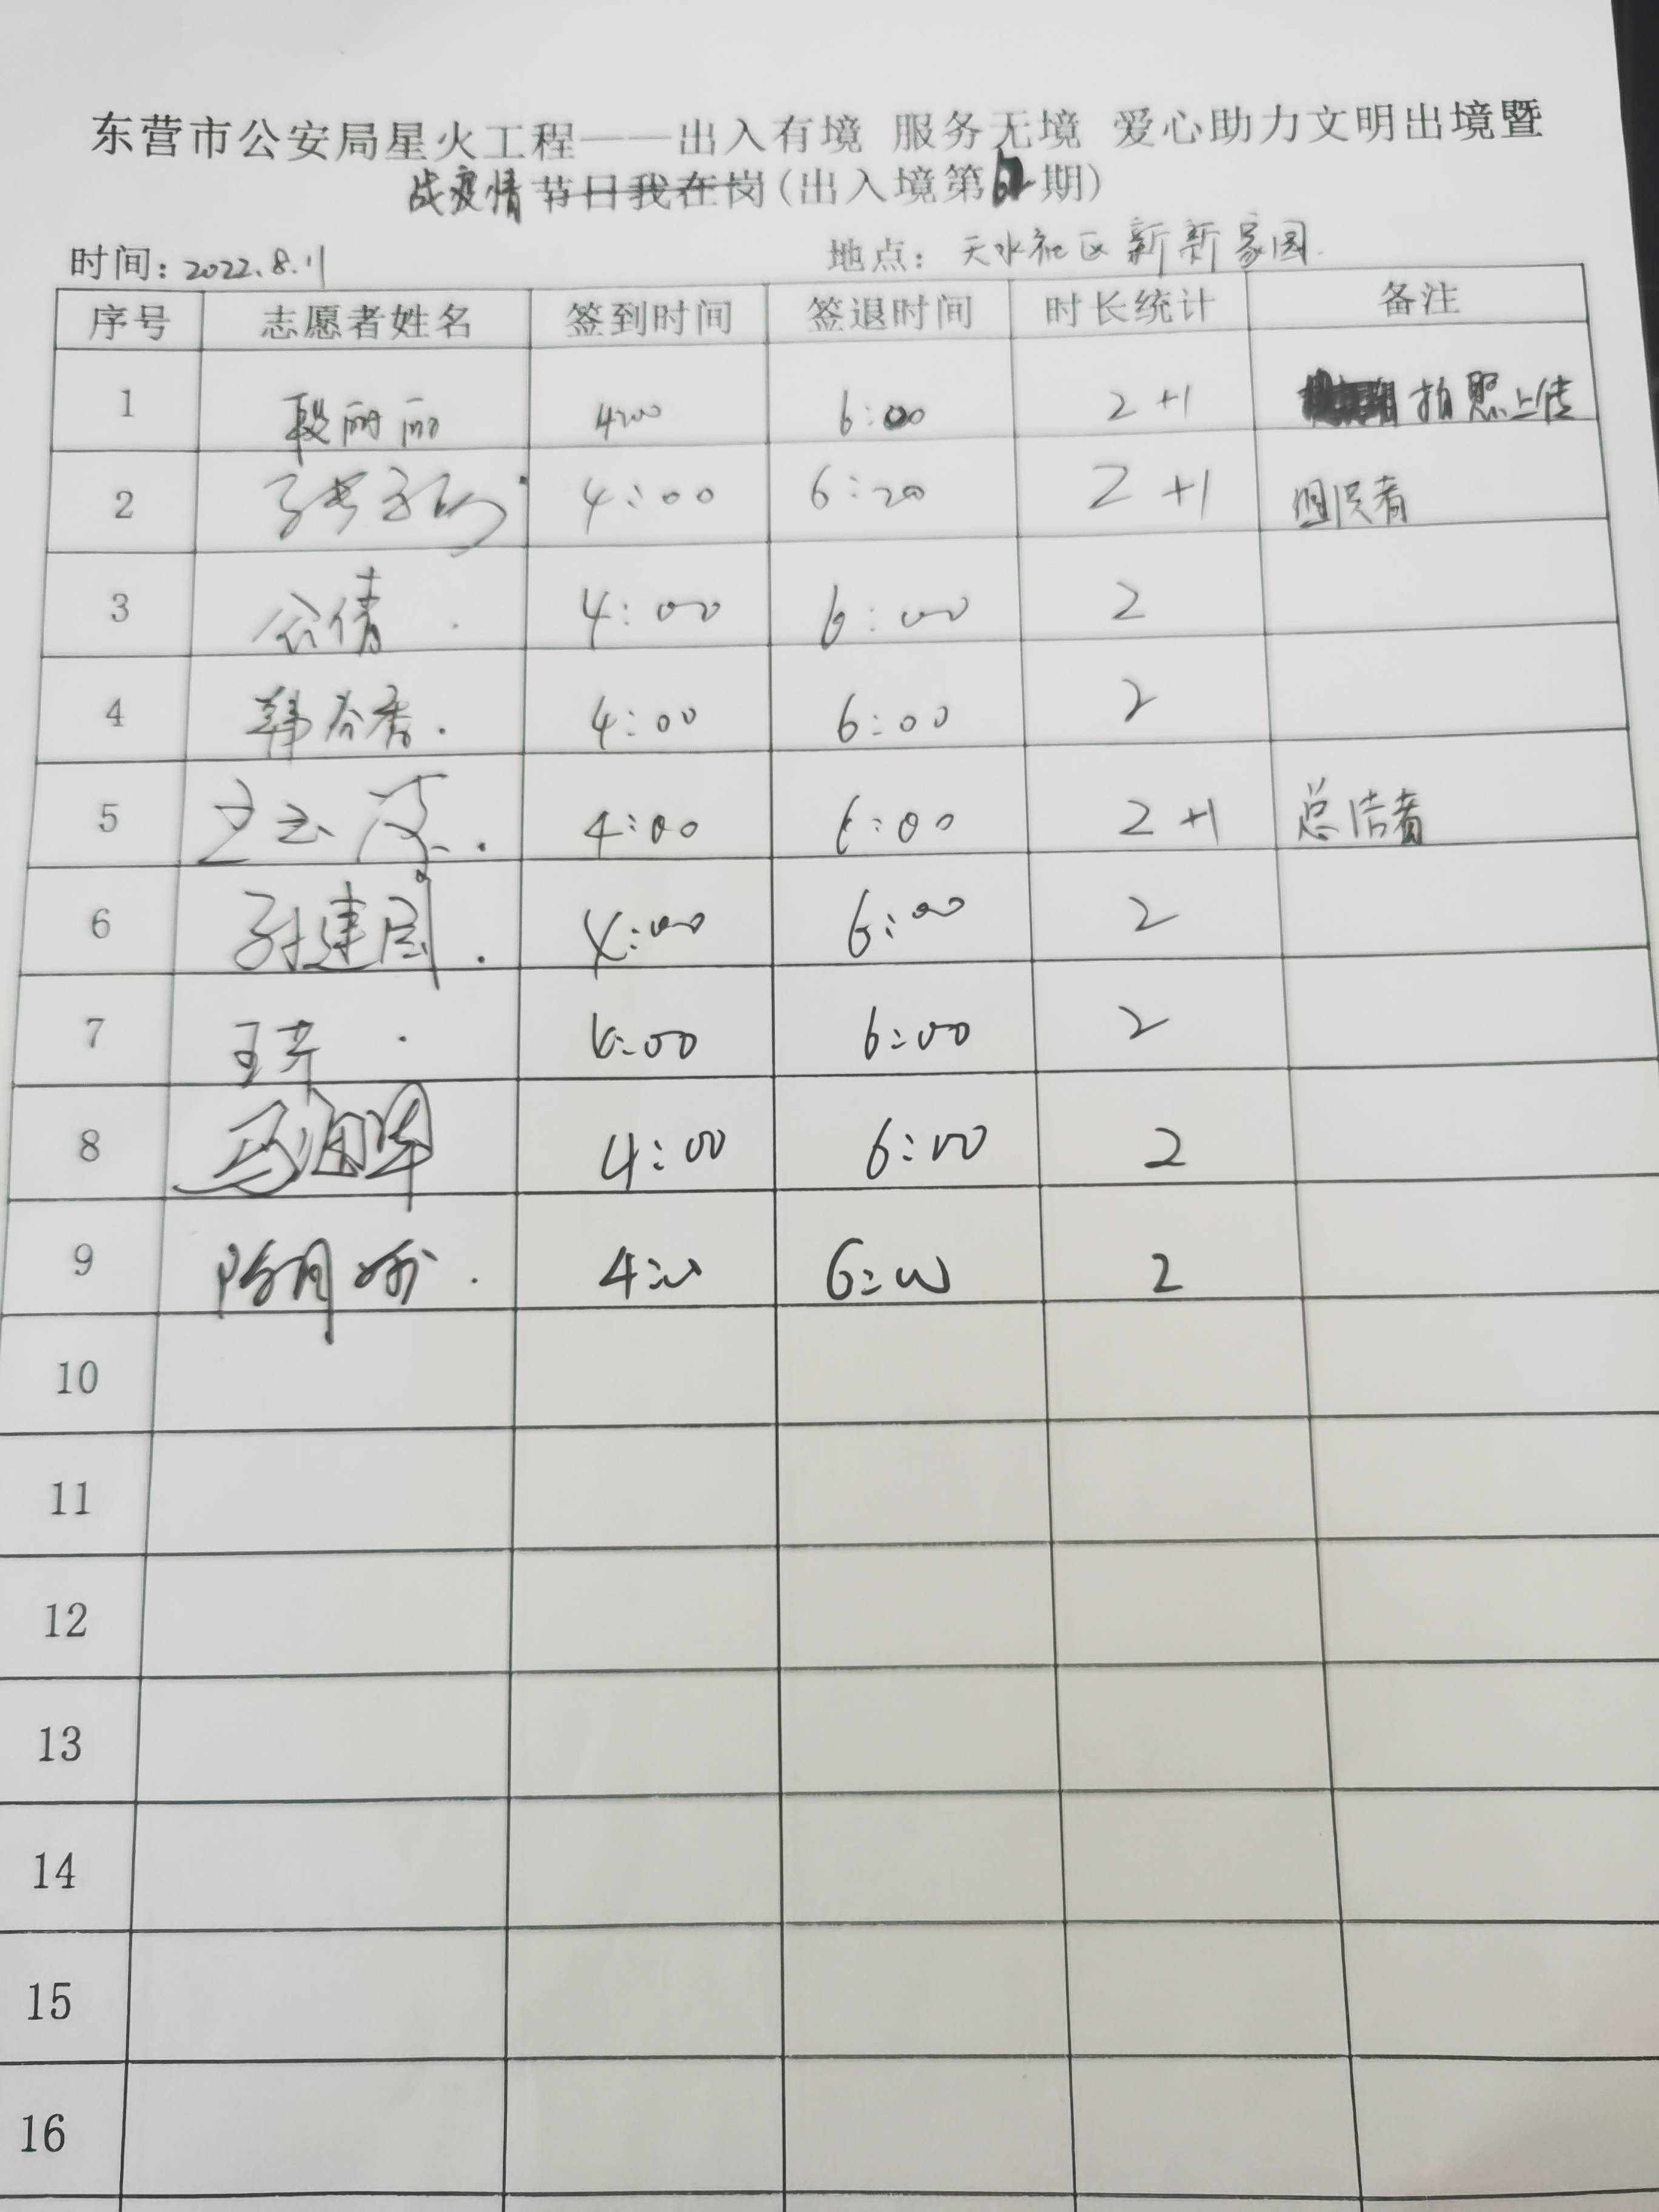 东营市公安局星火工程——出入有境 服务无境 爱心助力文明出境暨
战疫情 节日我在岗(出入境第期)
时间: 2022.8.11 地点: 天水社区新新家园
序号 志愿者姓名 签到时间 签退时间 时长统计 备注
1 段丽丽 4:00 6:00 2+1 拍照上传
2 4:00 6:20 2+1 组织者
3 谷倩 4:00 6:00 2
4 韩谷香 4:00 6:00 2
5 4:00 6:00 2+1 总结者
6 孙建国 4:00 6:00 2
7 王芹 4:00 6:00 2
8 4:00 6:00 2
9 4:00 6:00 2
10
11
12
13
14
15
16